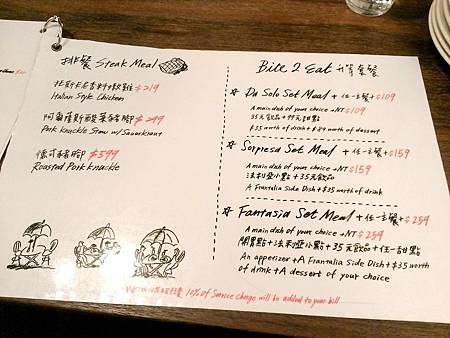 排餐 Steak Meal
托斯卡尼香料嫩雞 $219
Italian Style Chicken
阿爾薩斯酸菜豬腳 $249
Pork Knuckle Stew w/Sauerkraut
德式豬腳 $399
Roasted Pork Knuckle
Bite 2 Eat 升等套餐
☆ Da Solo Set Meal + 任一主餐 + $109
A main dish of your choice + NT $109
35元飲品 + 49元甜品
$35 worth of drink + $49 worth of dessert
☆ Sorpresa Set Meal + 任一主餐 + $159
A main dish of your choice + NT $159
法利啞小點 + 35元飲品
A Frantalia Side Dish + $35 worth of drink
☆ Fantasia Set Meal + 任一主餐 + $259
A main dish of your choice + NT $259
開胃點 + 法利啞小點 + 35元飲品 + 任一甜點
An appetizer + A Frantalia Side Dish + $35 worth
of drink + A dessert of your choice
10% of Service Charge will be added to your bill